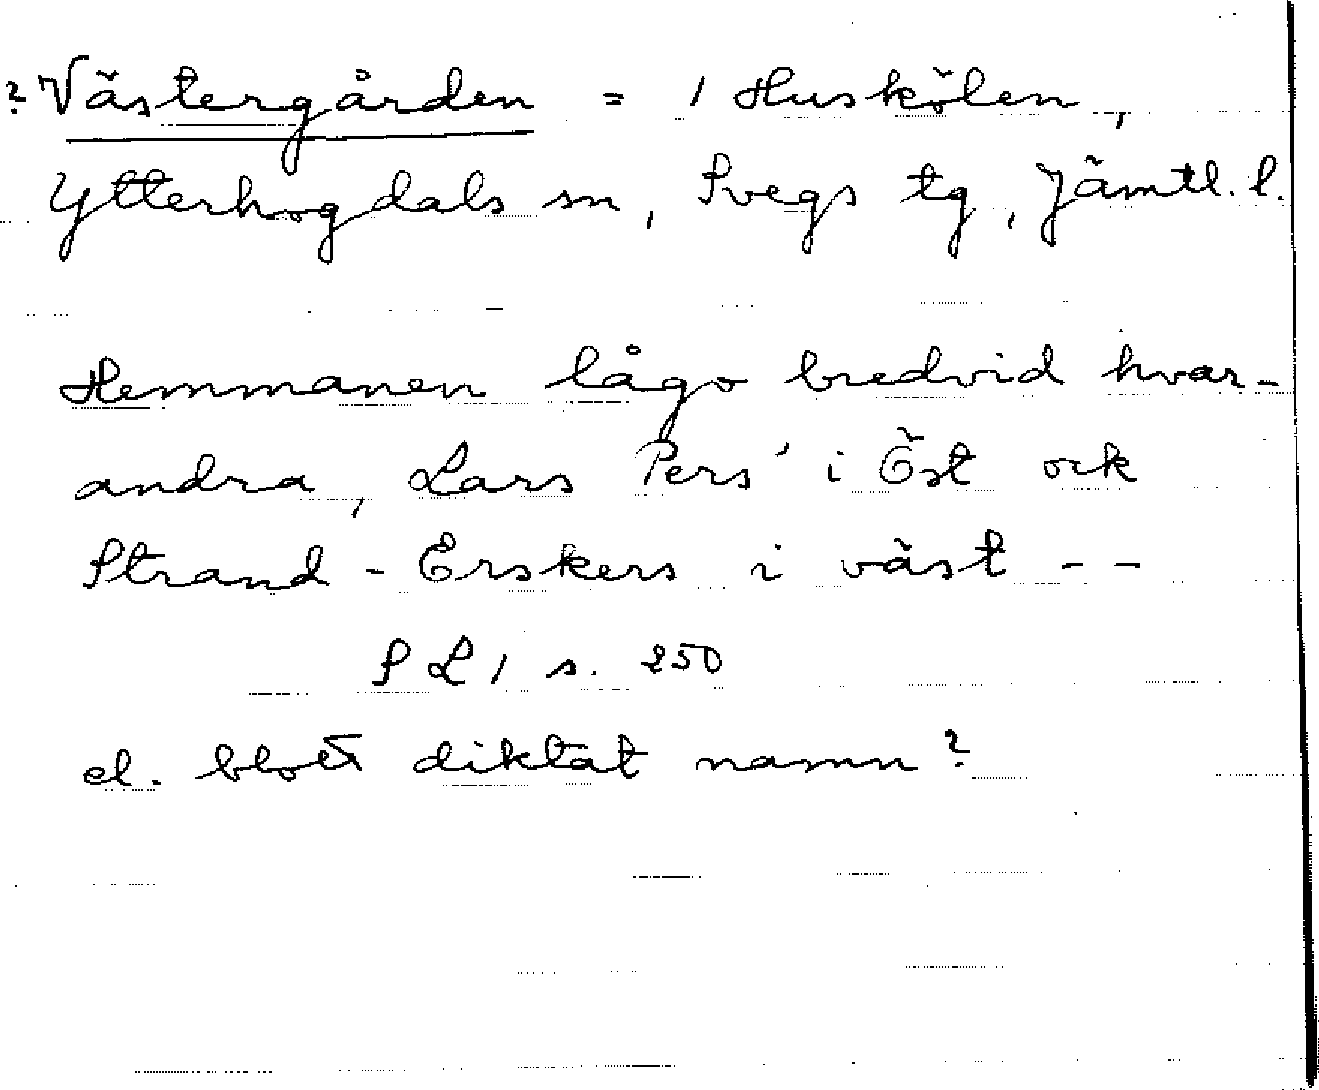 ? Västergården = 1 Huskölen,
Ytterhogdals sn, Svegs tg, Jämtl. l.
Hemmanen lågo bredvid hvar-
andra, Lars Pers' i Öst ock
Strand - Erskers i väst - -
S L 1 s. 250
el. blott diktat namn?